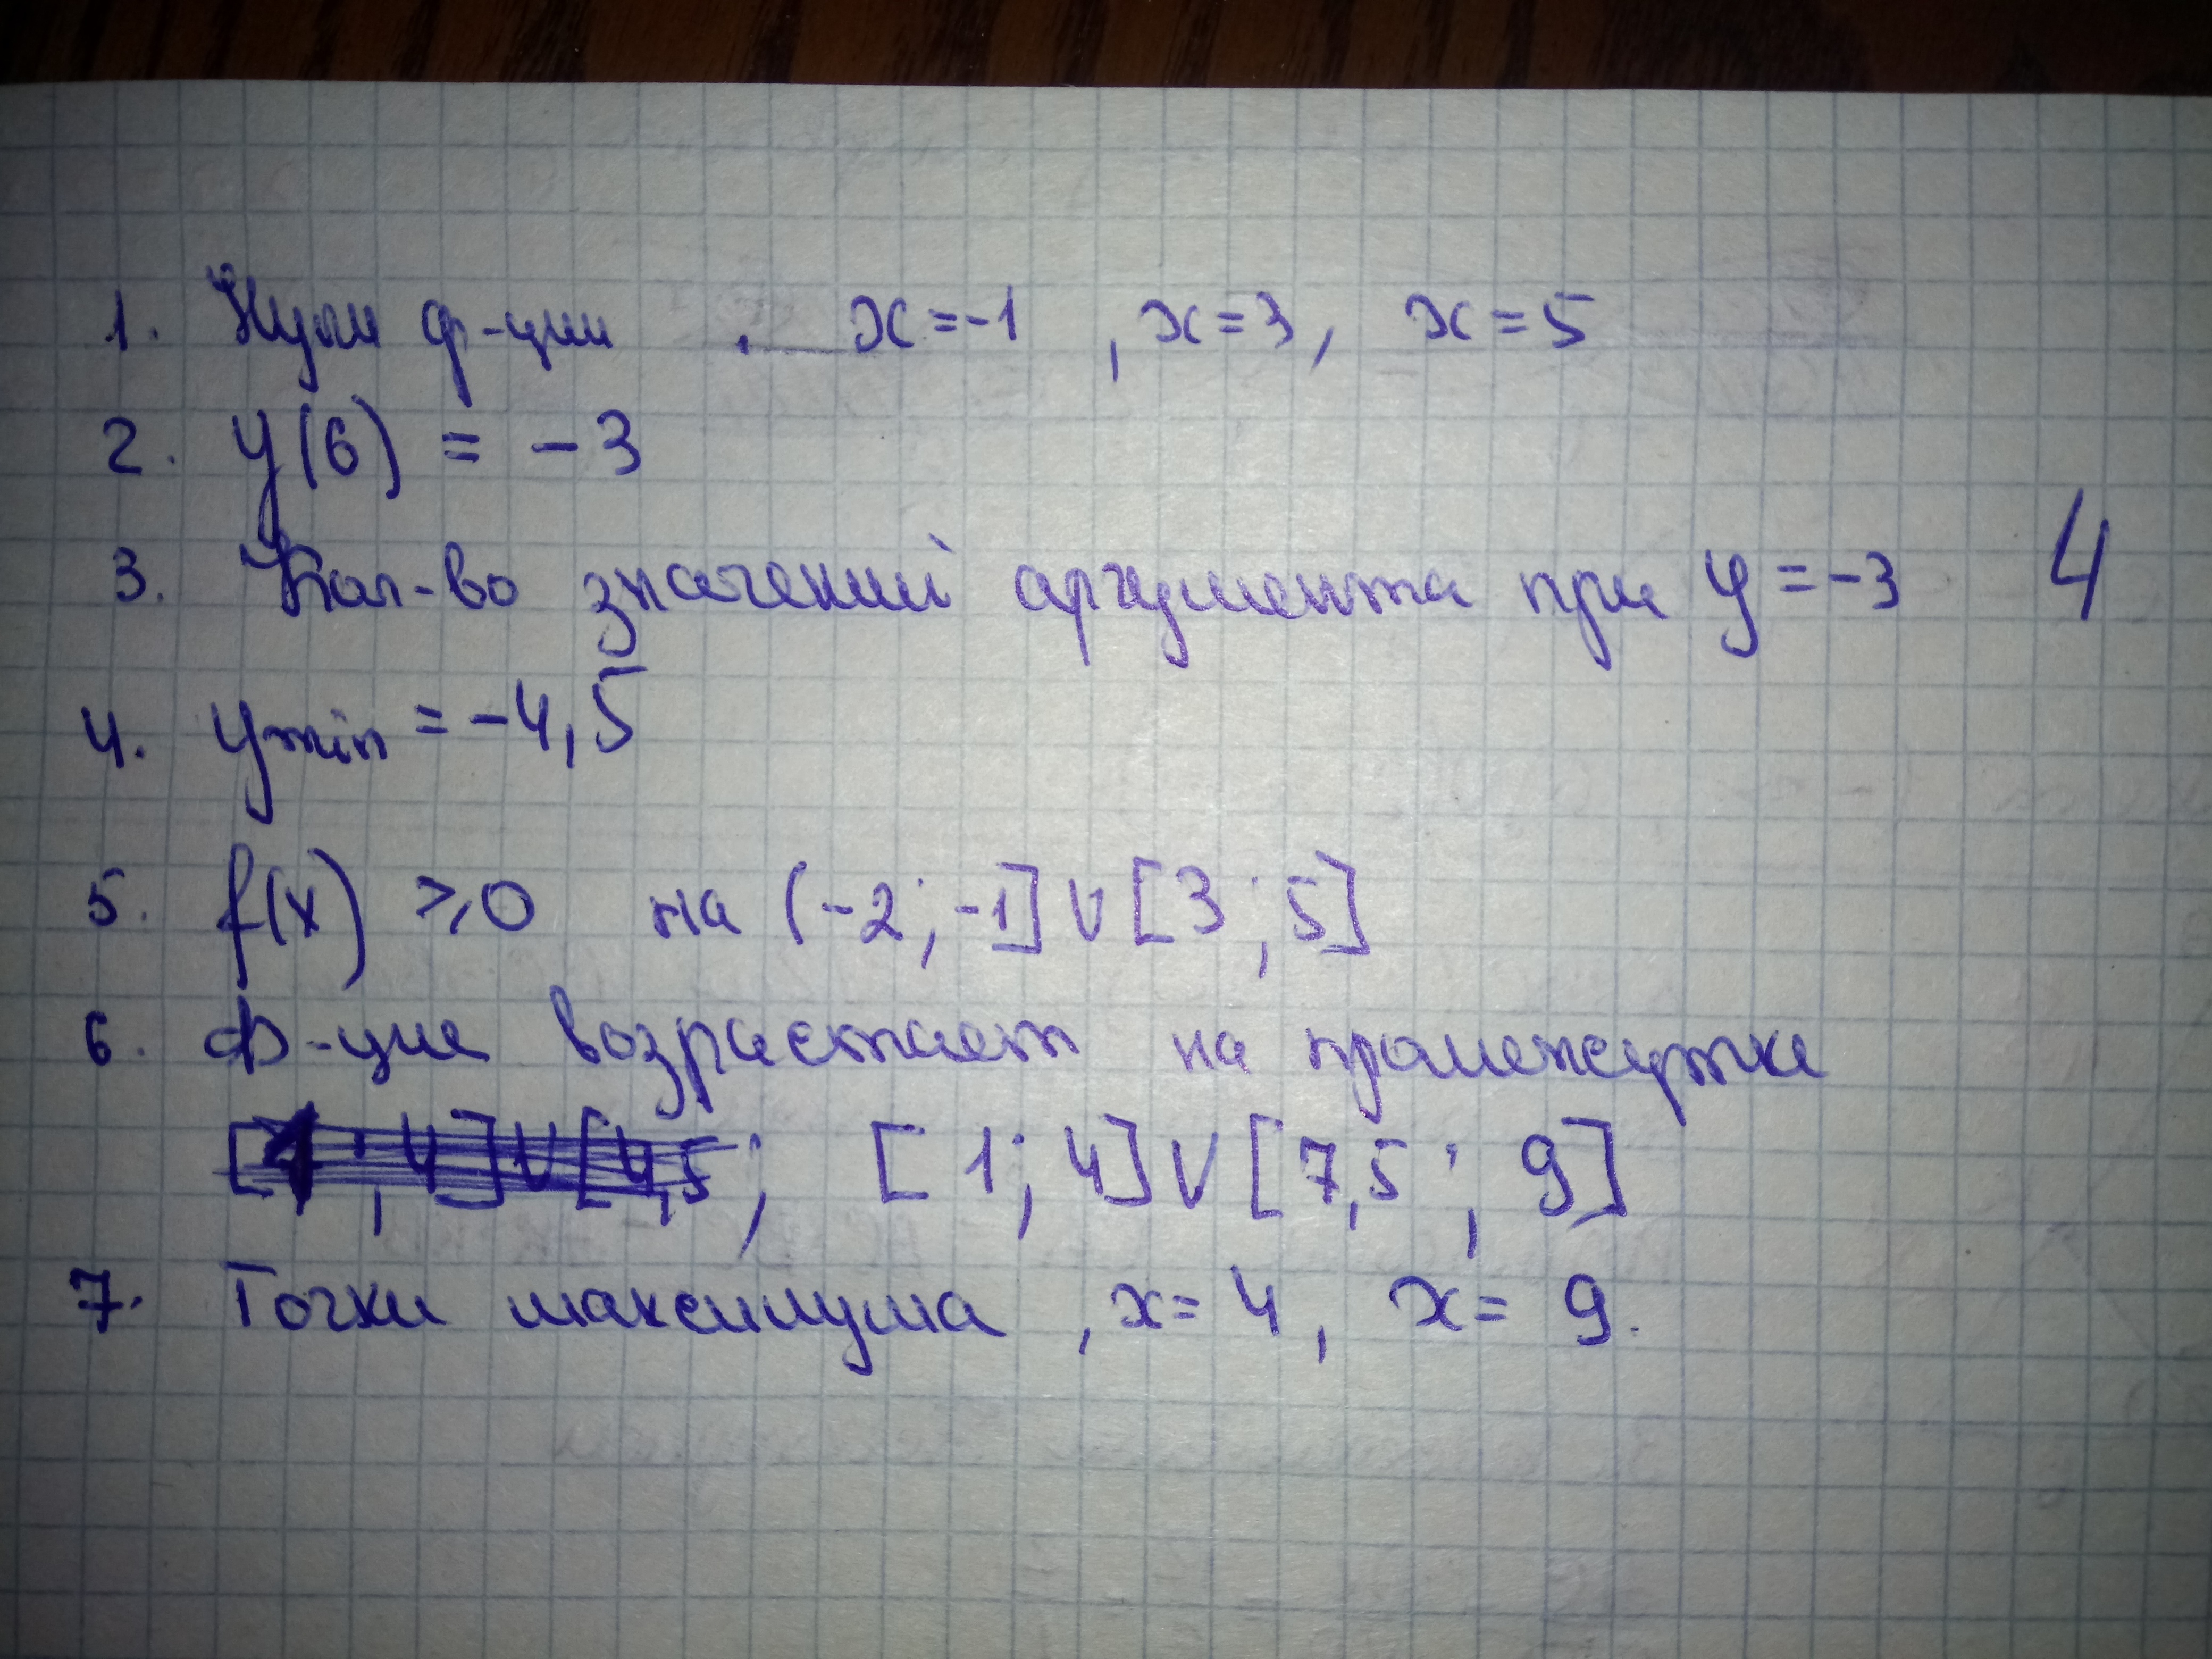 1. Нули ф-ции . x=-1 , x=3, x=5
2. y(6) = -3
3. Кол-во значений аргумента при y=-3 4
4. ymin = -4,5
5. f(x) ⩾0 на (-2; -1]∪[3; 5]
6. Ф-ция возрастает на промежутке
[1; 4]∪[4,5; [1; 4]∪[7,5; 9]
7. Точки максимума , x=4, x= 9.